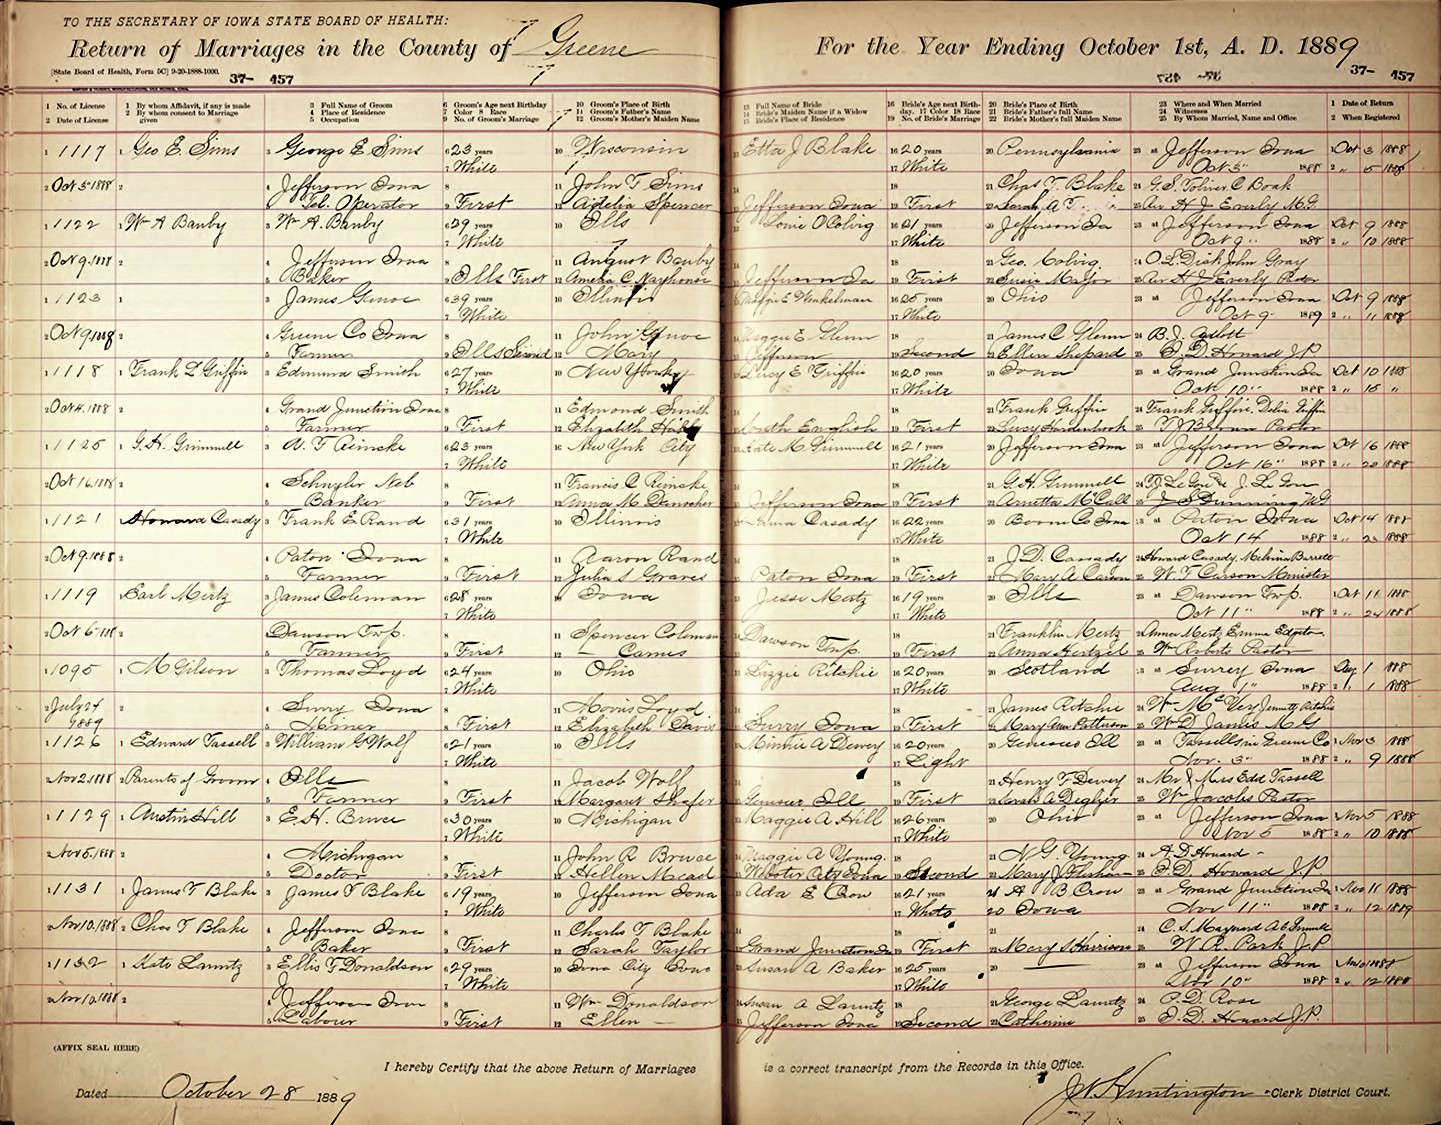 TO THE SECRETARY OF IOWA STATE BOARD OF HEALTH:
Return of Marriages in the County of Greene
For the Year Ending October 1st, A. D. 1889
[State Board of Health, Form 5C] 9-20-1888-1000.
37- 457
37- 457
1 No. of License
2 Date of License
1 By whom Affidavit, if any is made
2 By whom consent to Marriage given
3 Full Name of Groom
4 Place of Residence
5 Occupation
6 Groom's Age next Birthday
7 Color 8 Race
9 No. of Groom's Marriage
10 Groom's Place of Birth
11 Groom's Father's Name
12 Groom's Mother's Maiden Name
13 Full Name of Bride
14 Bride's Maiden Name if a Widow
15 Bride's Place of Residence
16 Bride's Age next Birthday, 17 Color 18 Race
19 No. of Bride's Marriage
20 Bride's Place of Birth
21 Bride's Father's full Name
22 Bride's Mother's full Maiden Name
23 Where and When Married
24 Witnesses
25 By Whom Married, Name and Office
1 Date of Return
2 When Registered
1 1117 1 Geo E. Sims 3 George E Sims 6 23 years 10 Wisconsin Etta J Blake 16 20 years 20 Pennsylvania 23 at Jefferson Iowa 1 Oct 3 1888
7 White 17 White Oct 3" 1888 2 " 5 1888
2 Oct 3 1888 2 4 Jefferson Iowa 8 11 John T Sims 14 18 21 Chas T. Blake 24 G.S. Toliver C Boak
5 Tel. Operator 9 First 12 Adelia Spencer Jefferson Iowa 19 First 22 Sarah A T. 25 H J Everly M.G.
1 1122 1 Wm A Banby 3 Wm A. Banby 6 29 years 10 Ills Louie O Colvig 16 21 years 20 Jefferson Ia 23 at Jefferson Iowa Oct 9 1888
7 White 17 White Oct 9 " 1888 2 " 10 1888
2 Oct 9. 1888 2 4 Jefferson Iowa 11 August Banby 14 18 21 Geo. Colvig 24 O.L. Dick John Gray
5 Baker 9 Ills First 12 Amelia C. Jefferson Ia 19 First 22 Susie Major 25 H J Everly Pastor
1 1123 1 3 James Genoe 6 39 years 10 Illinois Maggie E Winkelman 16 25 years 20 Ohio 23 at Jefferson Iowa 1 Oct 9 1888
7 White 17 White Oct 9 " 1889 2 " 11 1888
2 Oct 9. 1888 2 4 Greene Co Iowa 11 John Genoe Maggie E Glenn 18 21 James C Glenn 24 B. J.
5 Farmer 9 Ills Second 12 Mary Jefferson 19 Second 22 Ellen Shepard 25 P. D. Howard J.P.
1 1118 1 Frank L Griffin 3 Edmund Smith 6 27 years 10 New York Lucy E Griffin 16 20 years 20 Iowa 23 at Grand Junction Ia 1 Oct 10 1888
7 White 17 White Oct 10 " 1888 2 " 15 "
2 Oct 4. 1888 2 4 Grand Junction Iowa 8 11 Edmond Smith 18 21 Frank Griffin 24 Frank Griffin, Delia Griffin
5 Farmer 9 First 12 Elizabeth North English 19 First 22 Lucy Hardenbook 25 Pastor
1 1125 1 G.H. Grimmell 3 A. F Reincke 6 23 years 10 New York City Kate M Grimmell 16 21 years 20 Jefferson Iowa 23 at Jefferson Iowa Oct 16 1888
7 White 17 White Oct 16 " 1888 2 " 20 1888
2 Oct 16. 1888 2 4 Schuyler Neb 11 Francis C Reinske 18 21 G.H. Grimmell 24
5 Banker 9 First 12 Anna M. Jefferson Iowa 19 First 22 Annetta McCall 25 MG
1 1121 Howard Casady 3 Frank E. Rand 6 31 years 10 Illinois Anna Casady 16 22 years 20 Boone Co Iowa 23 at Paton Iowa Oct 14 1888
7 White 17 White Oct 14 1888 2 " 23 1888
2 Oct 9. 1888 2 4 Paton Iowa 8 11 Aaron Rand 18 21 J.D. Cassady 24 Howard Casady, Melvina Barrett
5 Farmer 9 First 12 Julia S Graves Paton Iowa 19 First 22 Mary A Carson 25 W. T Carson Minister
1 1119 Earl Mertz 3 James Coleman 6 28 years 10 Iowa Jesse Mertz 16 19 years 20 Ills 23 at Dawson Twp. 1 Oct 11 1888
7 White 17 White Oct 11" 1888 2 " 24 1888
2 Oct 6 1888 2 Dawson Twp. 8 11 Spencer Coleman Dawson Twp. 18 21 Franklin Mertz 24 Annie Mertz Emma Edgeton
5 Farmer 9 First 12 — Cames 19 First 22 Anna Hertzel 25 Wm Roberts Pastor
1 1095 1 M Gilson 3 Thomas Loyd 6 24 years 10 Ohio Lizzie Ritchie 16 20 years 20 Scotland 23 at Surrey Iowa Aug 1 1888
7 White 17 White Aug 1 " 1888 2 " 1 1888
2 July 24 1889 2 4 Surry Iowa 11 Morris Loyd 18 21 James Ritchie 24 Wm McVey Jennett Ritchie
5 Miner 8 First 12 Elizabeth Davis Surry Iowa 19 First 22 Mary Ann Patterson 25 Wm D James M G
1 1126 1 Edward Tassell 3 William G Wolf 6 21 years 10 Ills Minnie A Dewey 16 20 years 20 Geneseo Ill 23 at Tassells in Greene Co 1 Nov 3 1888
7 White 17 Light Nov. 3" 1888 2 " 9 1888
2 Nov 2 1888 2 Parents of Groom 4 Ills 8 11 Jacob Wolf 18 21 Henry T Dewey 24 Mr & Mrs Edd Tassell
5 Farmer 9 First 12 Margaret Shafer Geneseo Ill 19 First 22 Sarah A 25 Wm Jacobs Pastor
1 1129 1 Austin Hill 3 E. H. Bruce 6 30 years 10 Michigan Maggie A Hill 16 26 years 20 Ohio 23 at Jefferson Iowa 1 Nov 5 1888
7 White 17 White Nov 5 1888 2 " 10 1888
2 Nov 5. 1888 2 4 Michigan 8 11 John R Bruce Maggie A Young. 18 21 N. G. Young 24 A. D. Howard -
5 Doctor 9 First 12 Hellen Mead Webster City Iowa 19 Second 22 Mary J 25 P. D. Howard J. P.
1 1131 1 James T Blake 3 James T Blake 6 19 years 10 Jefferson Iowa Ada E Crow 16 21 years 21 A B Crow 23 at Grand Junction Ia 1 Nov 11 1888
7 White 17 White 20 Iowa Nov 11 " 1888 2 " 12 1889
2 Nov 10. 1888 2 Chas T Blake 4 Jefferson Iowa 11 Charles T Blake 14 18 21 24 C. S. Maynard
5 Baker 9 First 12 Sarah Taylor Grand Junction Ia 19 First 22 Mary S Harrison 25 W. R. Park J.P.
1 1132 1 Kate Launtz 3 Ellis F Donaldson 6 29 years 10 Iowa City Iowa Susan A Baker 16 25 years 20 — 23 at Jefferson Iowa 1888
7 White 17 White Nov 10" 1888 2 " 12 1888
2 Nov 10. 1888 2 4 Jefferson Iowa 8 11 Wm Donaldson Susan A Launtz 18 21 George Launtz 24 P. D. Rose
5 Labour 9 First 12 Ellen — Jefferson Iowa 19 Second 22 Catherine 25 P. D. Howard J.P.
(AFFIX SEAL HERE)
I hereby Certify that the above Return of Marriages is a correct transcript from the Records in this Office.
Dated October 28 1889
J.N. Huntington Clerk District Court.